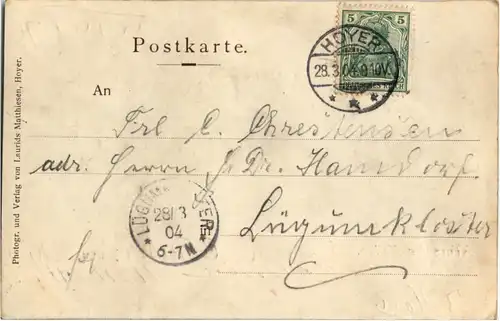 Postkarte.
5 5
HOYER
28.3.04.9-10V.
An
Frl C. Chrestensen
adr. Herrn Dr. Hamdorf.
Lügumkloster
28/3
04
6-7N
Photogr. und Verlag von Laurids Matthiesen, Hoyer.